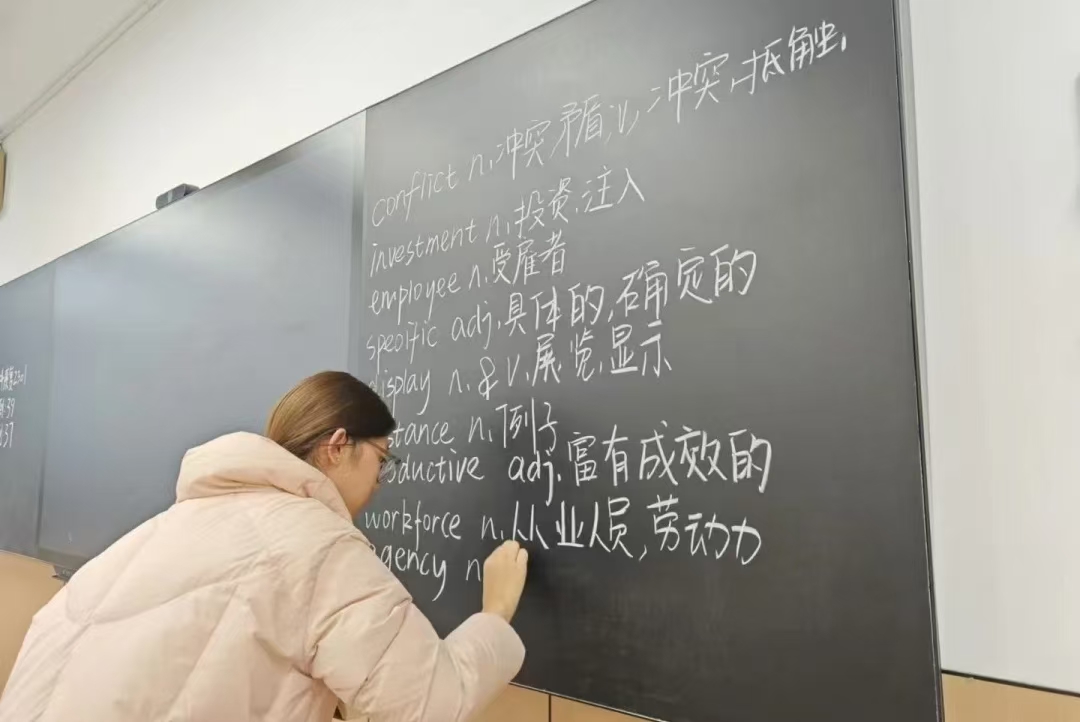 conflict n. 冲突 矛盾; v, 冲突, 抵触.
investment n. 投资. 注入
employee n. 受雇者
specific adj. 具体的, 确定的
display n. & v. 展览. 显示
stance n. 例子
ductive adj. 富有成效的
workforce n. 从业人员, 劳动力
agency n